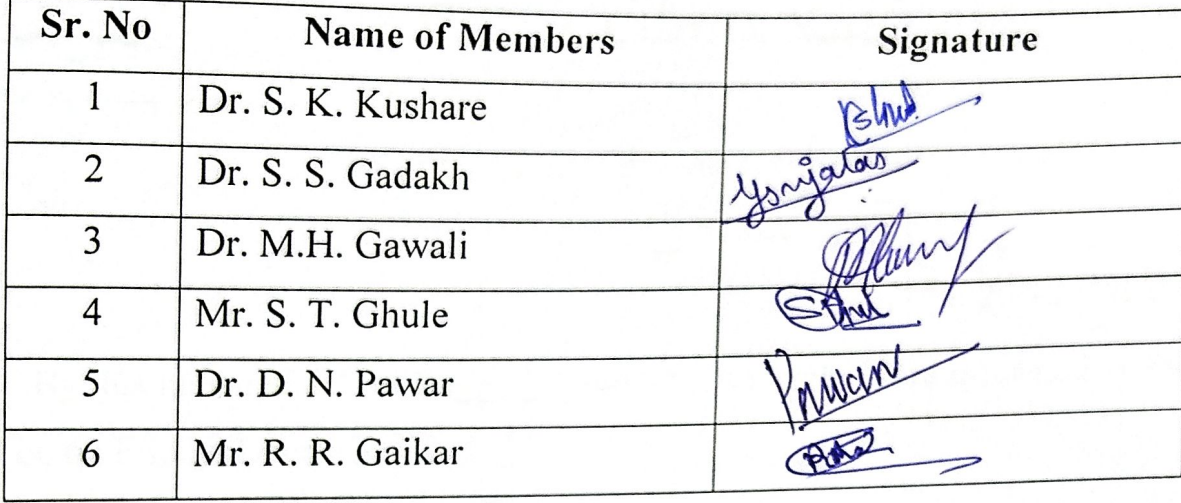 Sr. No Name of Members Signature
1 Dr. S. K. Kushare
2 Dr. S. S. Gadakh
3 Dr. M.H. Gawali
4 Mr. S. T. Ghule
5 Dr. D. N. Pawar
6 Mr. R. R. Gaikar